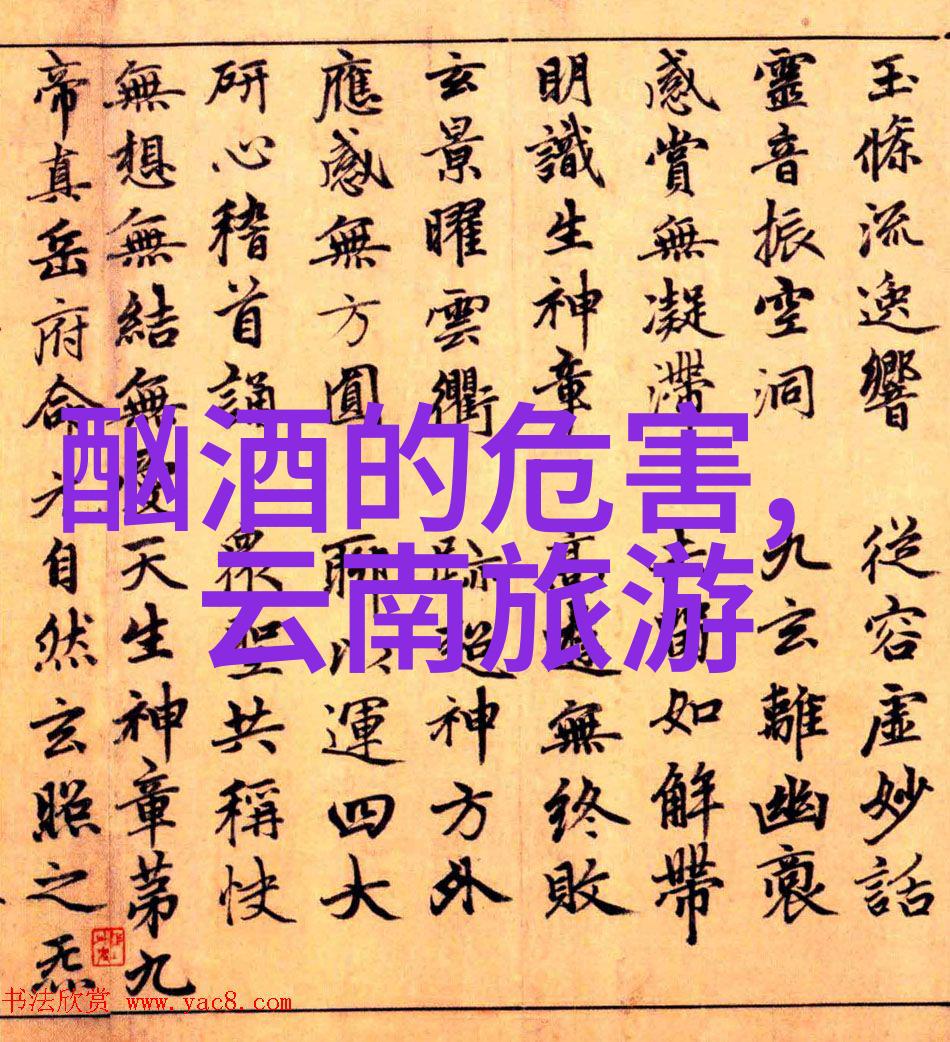 玉條流逸響 從容虛妙話
靈音振空洞 九玄離幽
感賞無凝滯 如解帶
明識生神章 高遊無終敗
玄景曜雲衢 跡超神方外
應感無方圓 聊以運四大
研心稽首誦 眾聖共稱快
無想無結無愛天生神章第九
帝真岳府合元自然玄照之炁
酗酒的危害,
云南旅游
书法欣赏 www.yac8.com